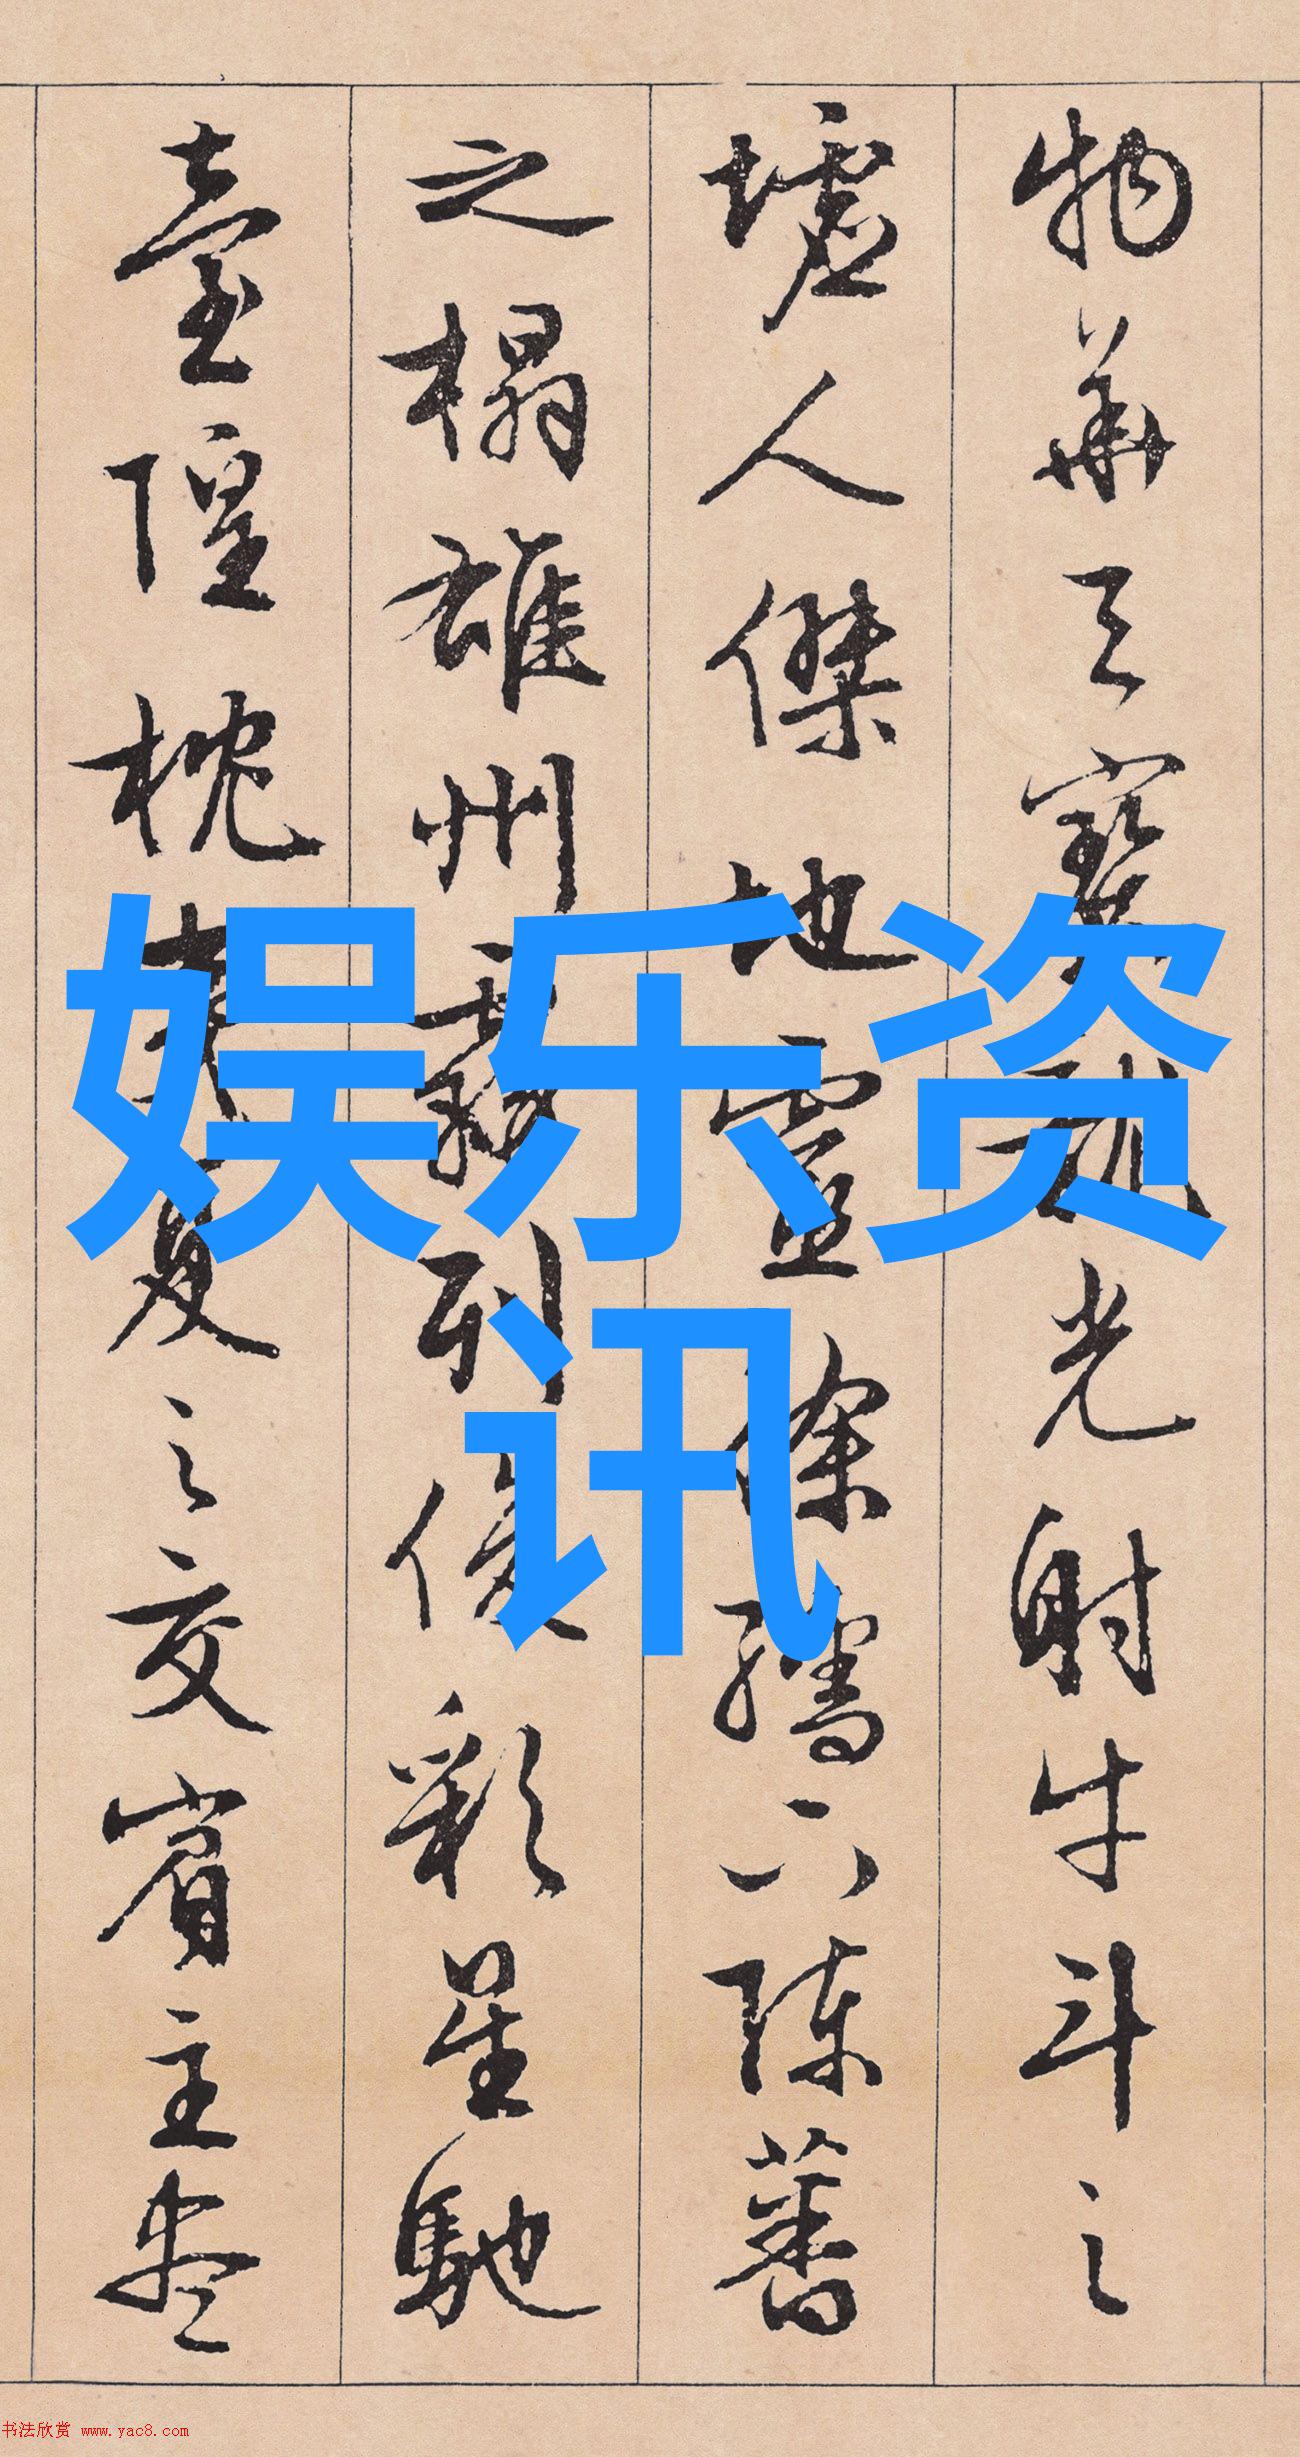 物華天寶龍光射牛斗之
墟人傑地靈徐孺下陳蕃
之榻雄州霧列俊彩星馳
臺隍枕夷夏之交賓主盡
娱乐资
讯
书法欣赏 www.yac8.com